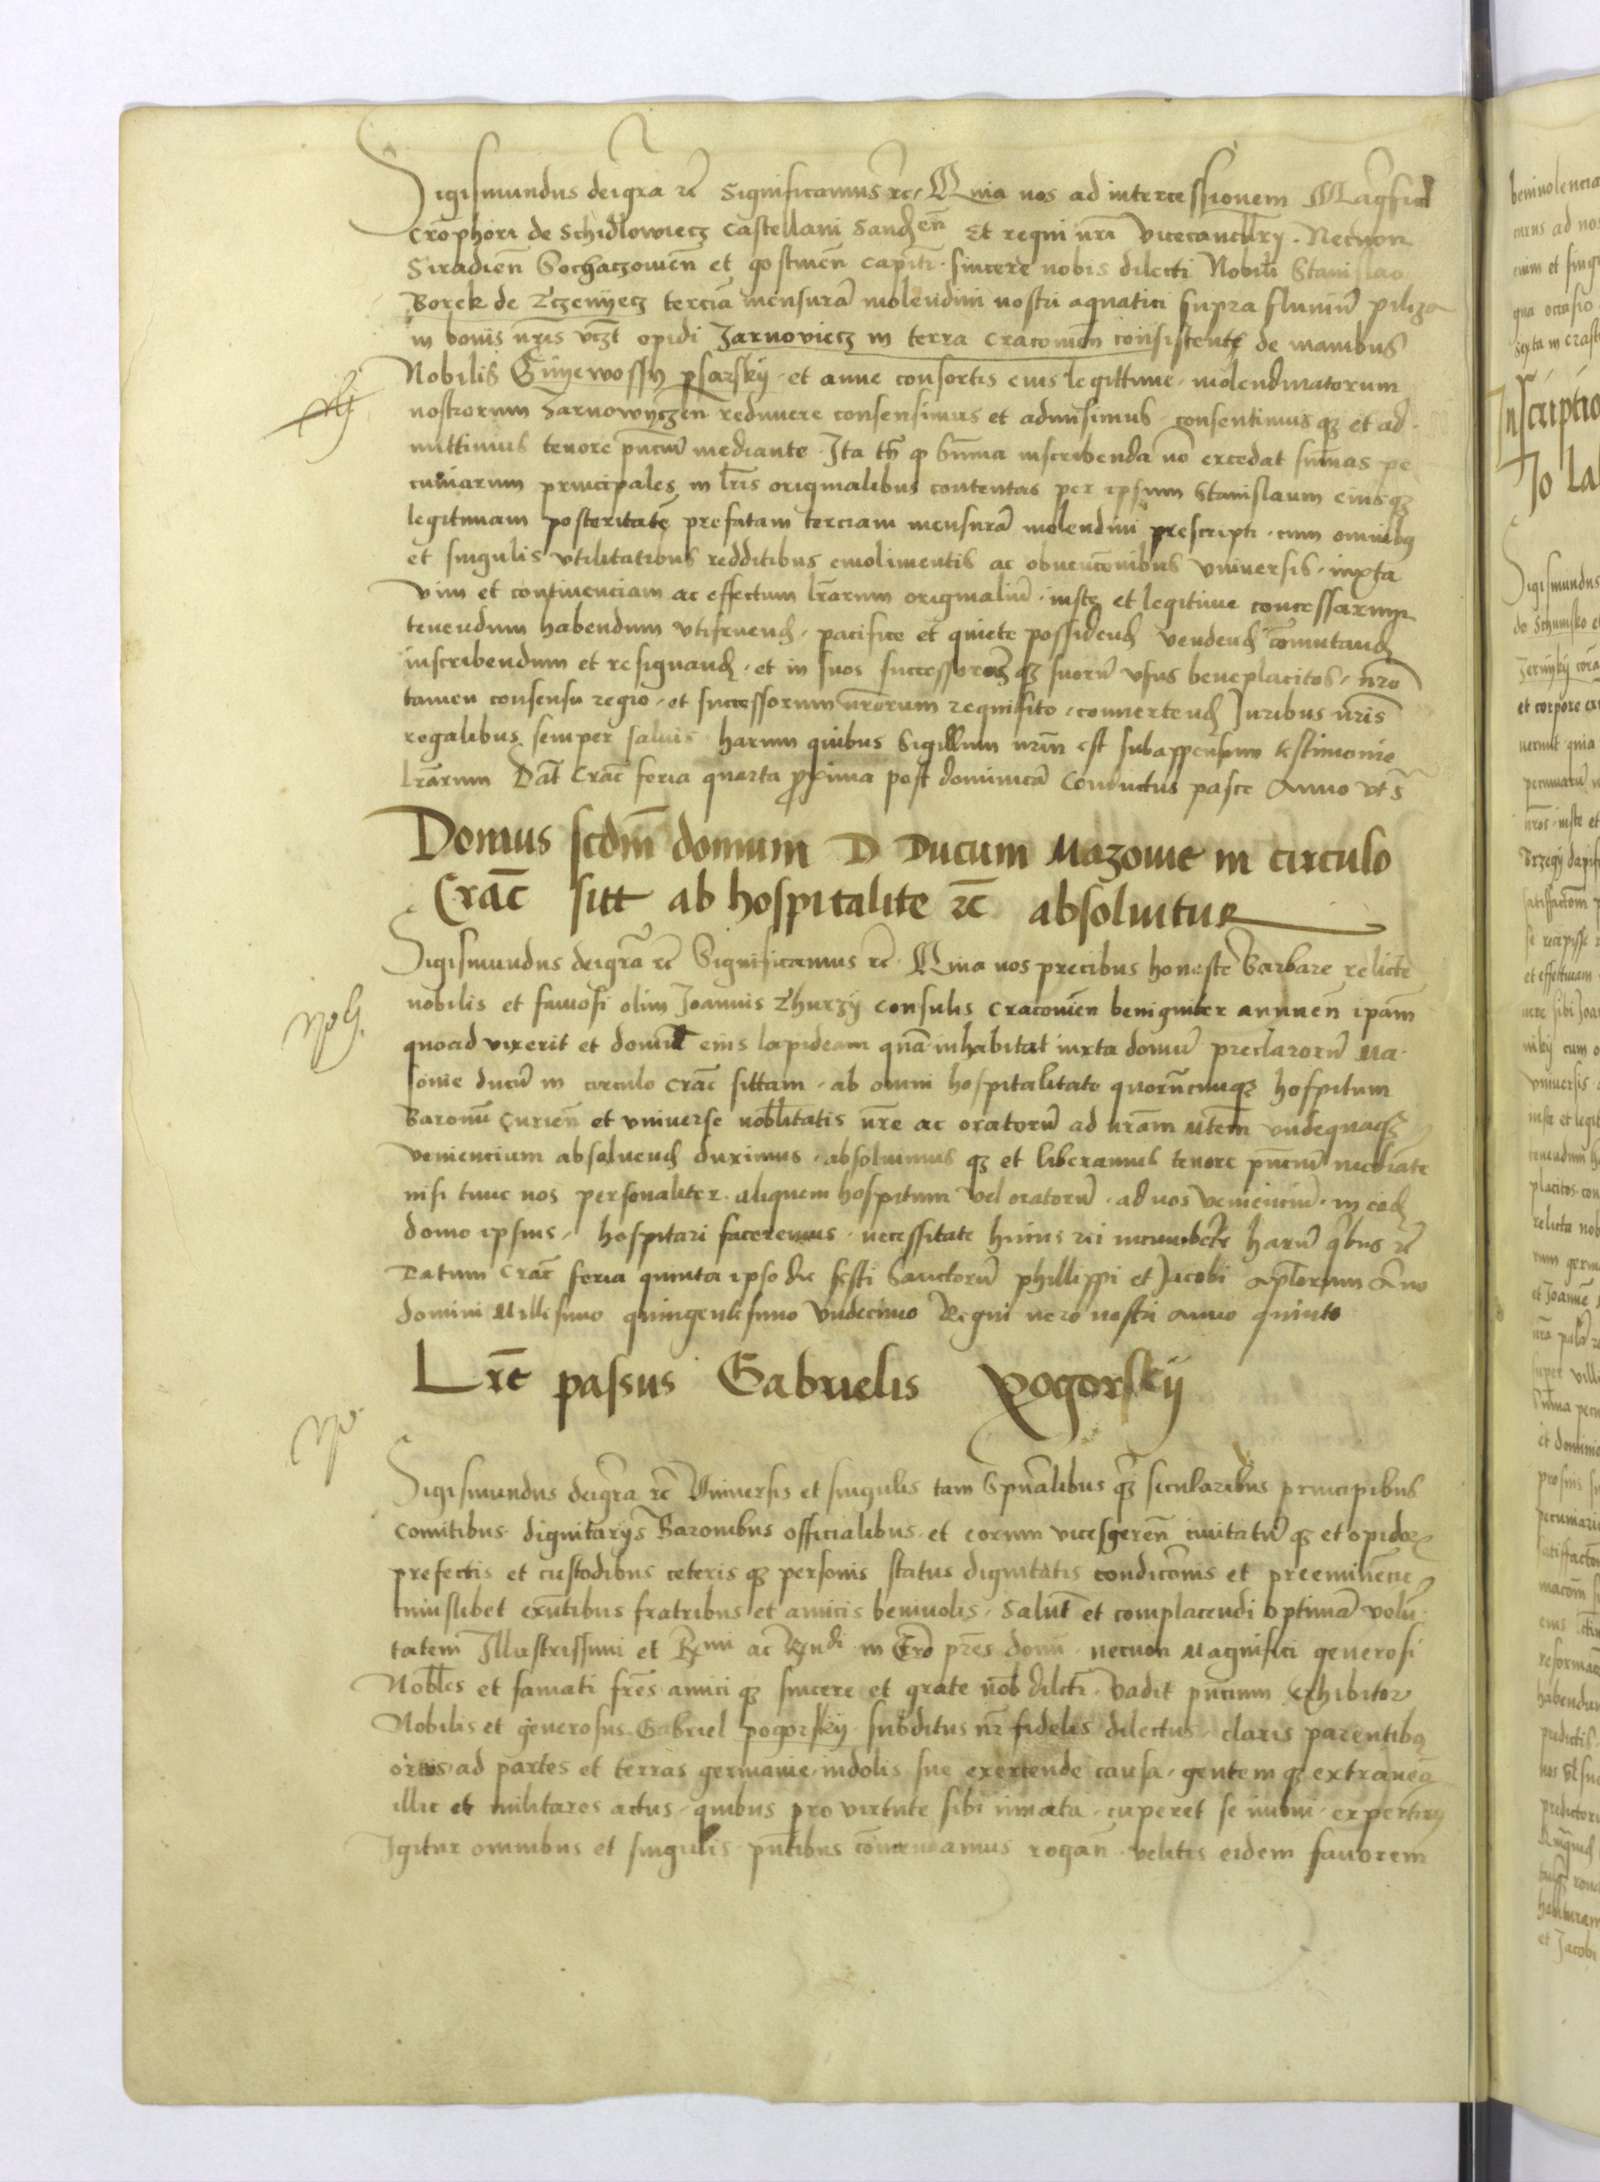 Sigismundus dei gra̅ rc̅ Significamus rc̅ Quia nos ad intercessionem Magnifici
Cro̅phori de Schidlowiecz Castellani Sandₑn̅ Et regni nr̅i Vicecancellrÿ. Necnon
Siradien̅ Sochaczowien̅ et gostinen̅ Capitⁱ. sincere nobis dilecti Nobili Stanislao
Borek de Trzenÿecz tercia̅ mensura̅ molendini nostri aquatici supra fluviu̅ pilcza
in bonis nr̅is vczt̅ opidi Jarnoviecz in terra Cracovien̅ consistente de manibus
Nobilis Gnÿewossÿ psarskÿ et anne consortis eius legittime molendinatorum
nostrorum Jarnowÿczen̅ redimere consensimus et admisimus consentimus qȝ et ad
mittimus tenore pn̅ciu̅ mediante. Ita tn̅ qƺ su̅ma inscribenda no̅ excedat su̅mas pe
cuniarum principales in lr̅is originalibus contentas per ipsum Stanislaum eiusqȝ
legitimam posteritate̅ prefatam terciam mensura̅ molendini prescripti cum omnibus
et singulis vtilitatibus redditibus emolimentis ac obvenco̅nibus vniversis iuxta
vim et continenciam ac effectum lr̅arum originaliu̅ iuste et legitime concessarum
tenendum habendum vtifruend̨ pacifice et quiete possidend̨ vendend̨ co̅mutand̨
inscribendum et resignand̨ et in suos successorum qȝ suoru̅ vsus beneplacitos nr̅o
tamen consensu regio et successorum nr̅orum requisito convertend̨ Juribus nr̅is
regalibus semper salvis harum quibus Sigillum nr̅m est subappensum testimonio
lr̅arum Dat̅ Crac̅ feria quarta proxima post dominica̅ Conductus pasce Anno vt s̅
Domus scdm̅ domum D Ducum Mazowie in circulo
Crac̅ sitt ab hospitalite rc̅ absolvitur
Sigismundus dei gra̅ rc̅ Significamus rc̅ Quia nos precibus honeste Barbare relicte
nobilis et famosi olim Joannis Thurzÿ Consulis Cracovien̅ benigniter annuen̅ ipa̅m
quoad vixerit et domu̅ eius lapideam qua̅ inhabitat iuxta domu̅ preclaroru̅ Ma
sovie ducu̅ in circulo Crac̅ sittam ab omni hospitalitate quoru̅cumqȝ hospitum
Baronu̅ Curien̅ et vniverse nobl̅itatis nr̅e ac oratoru̅ ad nr̅am Mtem̅ vndequaqȝ
veniencium absolvend̨ duximus absolvimus qȝ et liberamus tenore pn̅ciu̅ mediante
nisi tunc nos personaliter aliquem hospitum vel oratoru̅ ad nos venienciu̅ in ead̨
domo ipsius hospitari faceremus necessitate huius rei incumbente haru̅ qⁱbus rc̅
Datum Crac̅ feria quinta ipso die festi Sanctoru̅ phillippi et Jacobi Apl̅orum Anno
domini Millesimo quingentesimo Vndecimo Regni vero nostri anno quinto
Lr̅e passus Gabrielis Pogorskÿ
Sigismundus dei gra̅ rc̅ Vniversis et singulis tam Spu̅alibus qȝ secularibus principibus
Comitibus dignitarÿs Baronibus officialibus et eorum vicesgeren̅ civitatu̅ qȝ et opidoꝝ
prefectis et custodibus ceteris qȝ personis status dignitatis condico̅nis et preeminencie
cuiuslibet exn̅tibus fratribus et amicis benivolis Salute̅ et complacendi optima̅ volu̅
tatem Illustrissimi et Rₘⁱ ac Rₙdⁱ in Cro̅ pr̅es domi̅ necnon Magnifici generosi
Nobl̅es et famati fr̅es amici qȝ sincere et grate nob̅ dilcti̅ Vadit pn̅cium exhibitor
Nobilis et generosus Gabriel pogorskÿ subditus nr̅ fidelis dilectus claris parentibus
ortus ad partes et terras germanie indolis sue exercende causa gentem qȝ extranea̅
illic et militares actus quibus pro virtute sibi innata cuperet se imbui expertiri
Igitur omnibus et singulis pn̅tibus co̅mendamus rogan̅ velitis eidem favorem